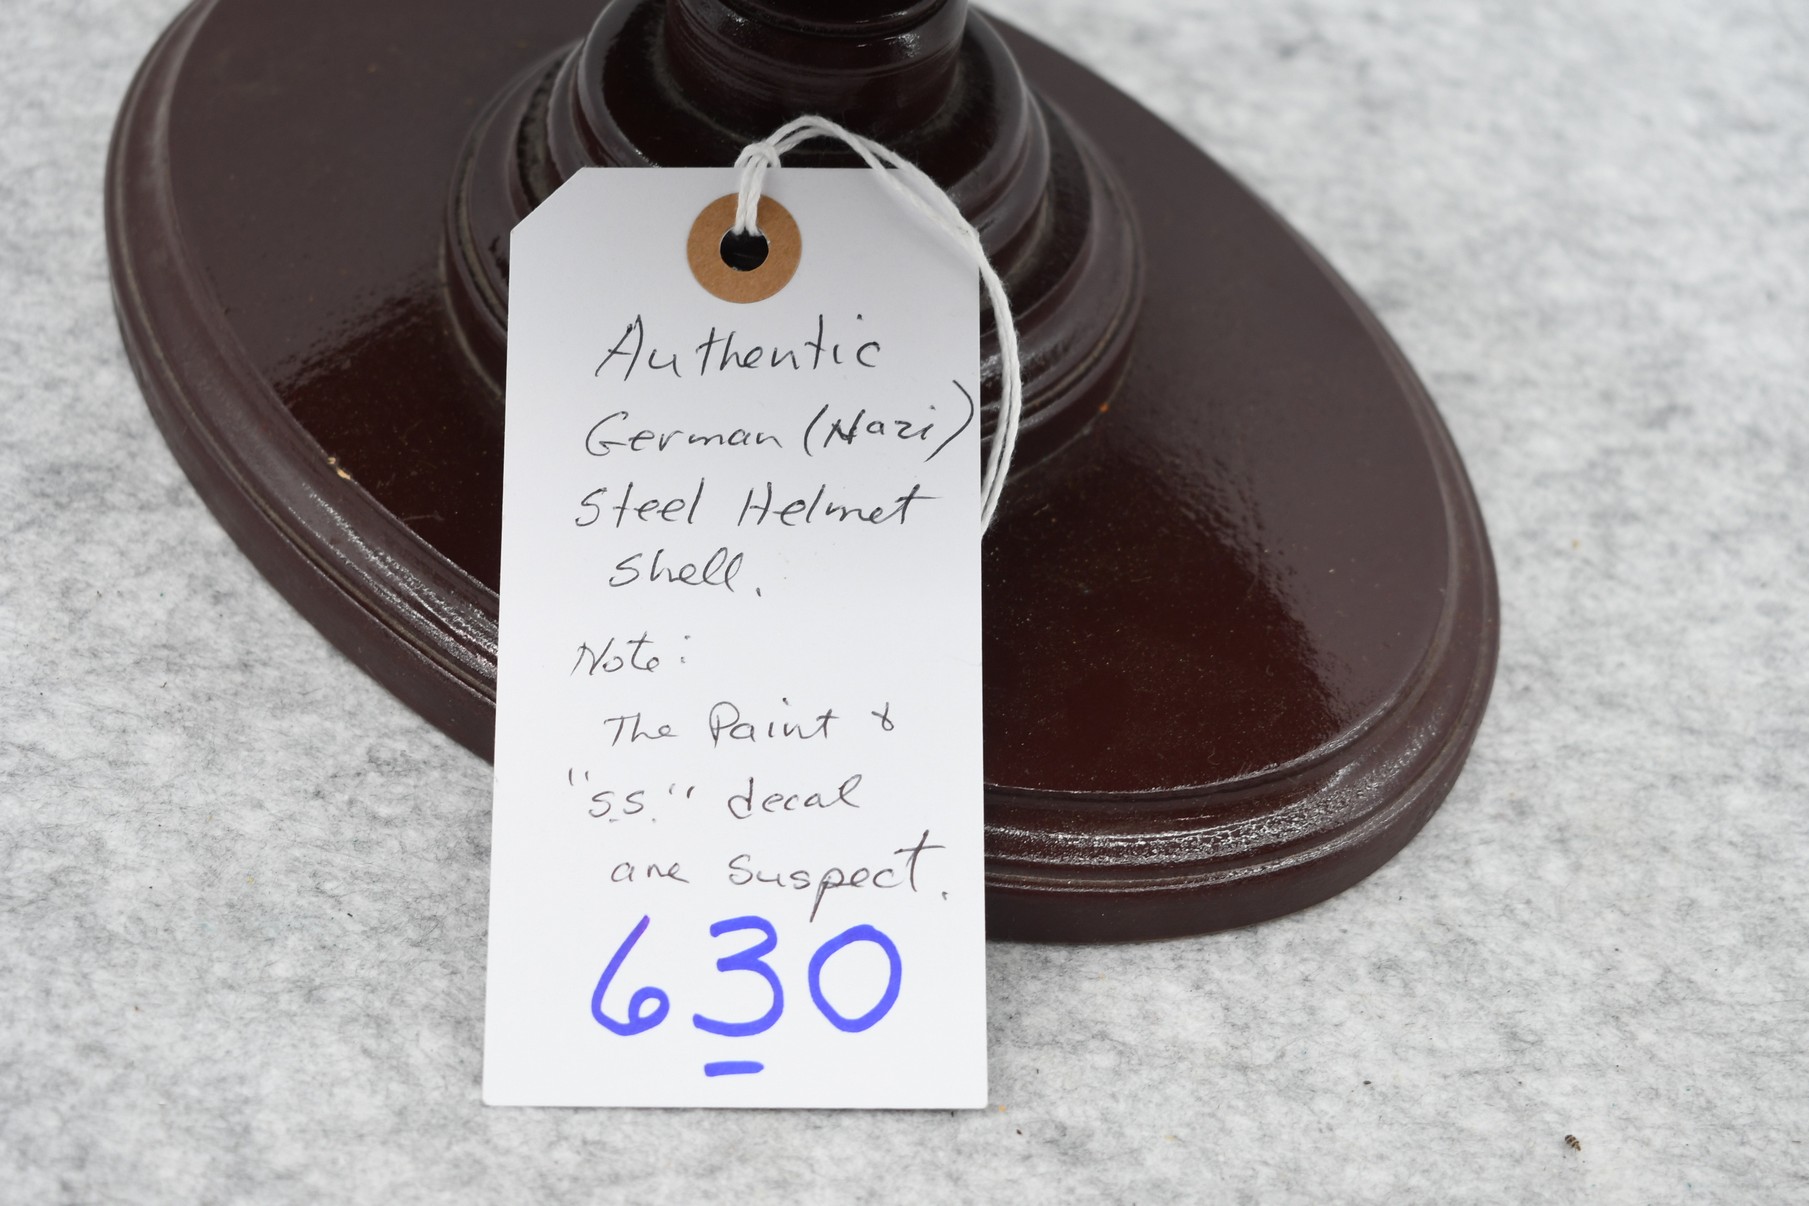 Authentic
German (Nazi)
Steel Helmet
Shell.
Note:
The Paint &
"S.S." decal
are suspect.
630